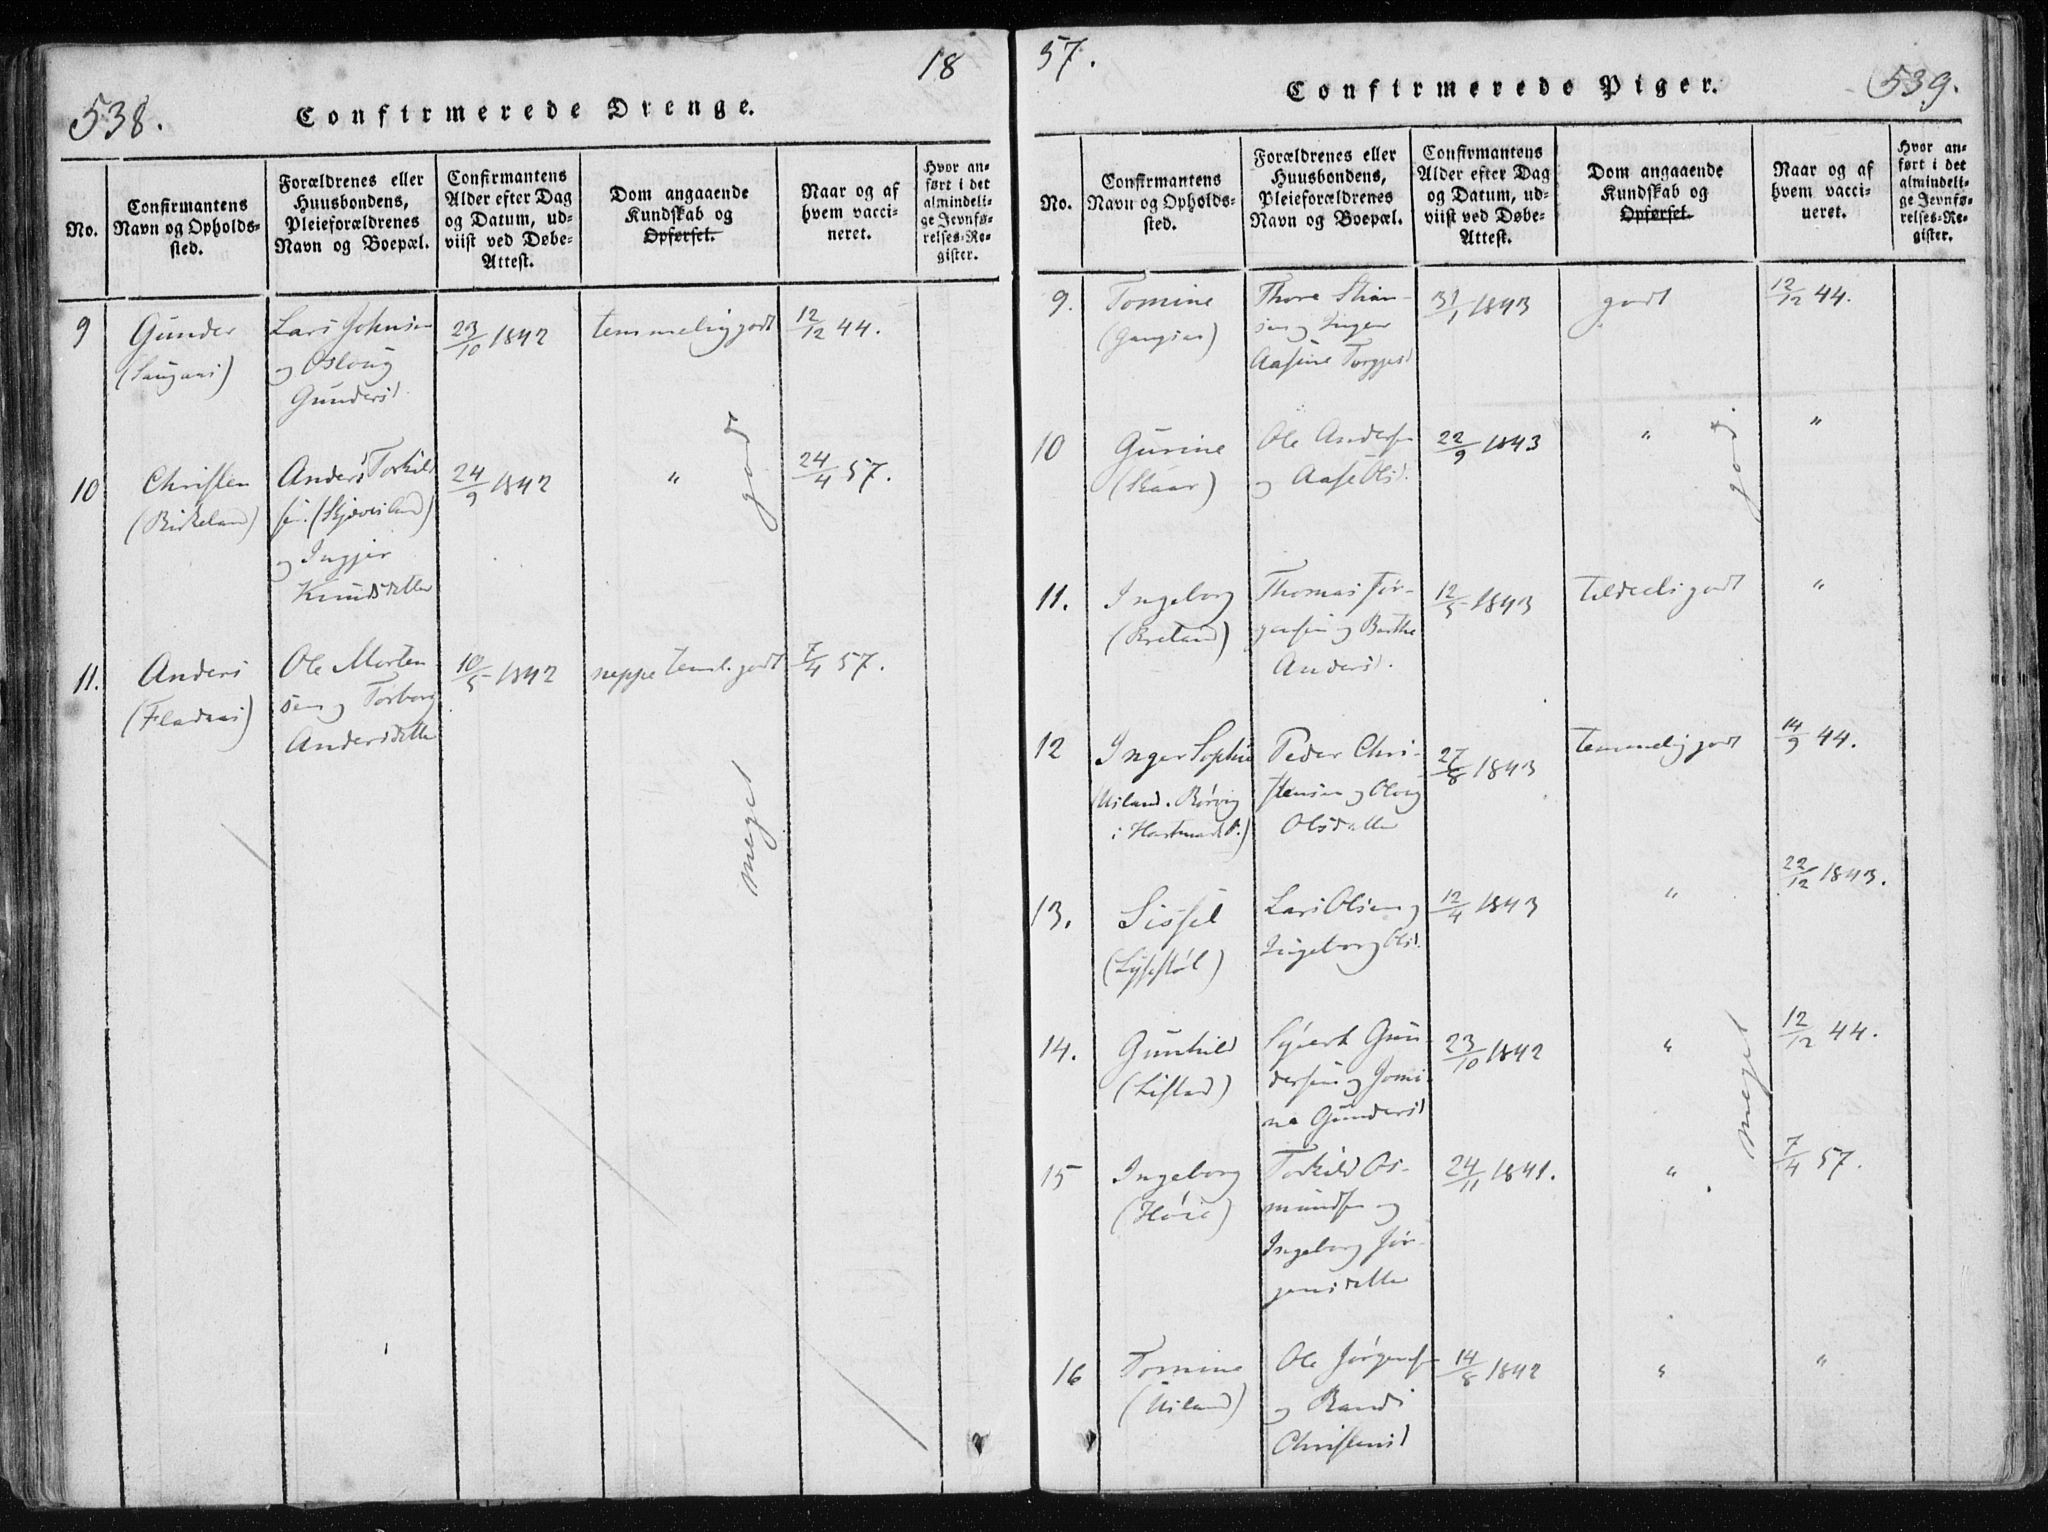 538.
18
Confirmerede Drenge.
No.
Confirmantens
Navn og Opholds-
sted.
Forældrenes eller
Huusbondens,
Pleieforældrenes
Navn og Boepæl.
Confirmantens
Alder efter Dag
og Datum, ud-
viist ved Døbe-
Attest.
Dom angaaende
Kundskab og
Opførsel.
Naar og af
hvem vacci-
neret.
Hvor an-
ført i det
almindeli-
ge Jevnfø-
relses-Re-
gister.
9
Gunder
Lars Johnsen
og Osloug
Gundersd.
23/10 1842
temmelig godt
12/12 44.
10
Christen
(Birkeland)
Anders Torkild
sen. (Skjævesland)
og Ingjer
Knudsdatter
24/9 1842
"
24/4 57.
11.
Anders
(Fladaas)
Ole Morten
sen og Torborg
Andersdatter
10/5 1842
neppe teml. godt
7/4 57.
meget god
57.
539.
Confirmerede Piger.
No.
Confirmantens
Navn og Opholds-
sted.
Forældrenes eller
Huusbondens,
Pleieforældrenes
Navn og Boepæl.
Confirmantens
Alder efter Dag
og Datum, ud-
viist ved Døbe-
Attest.
Dom angaaende
Kundskab og
Opførsel.
Naar og af
hvem vacci-
neret.
Hvor an-
ført i det
almindeli-
ge Jevnfø-
relses-Re-
gister.
9.
Tomine
Thore
Aasine Torgjesd
31/1 1843
godt
12/12 44.
10
Gurine
(Skaar)
Ole Andersen
og Aase Olsd.
22/9 1843
"
"
11.
Ingeborg
(Breland)
Thomas Jør-
gensen og Berthe
Andersd.
12/5 1843
tildeels godt
"
12
Inger Sophie
(Usland. Rørvig
Peder Chri-
stensen og Oloug
Olsdatter
27/8 1843
temmelig godt
14/9 44.
13.
Sissel
(Lyssestøl)
Lars Olsen og
Ingeborg Olsd.
12/4 1843
"
22/12 1843.
14.
Gunhild
(Liftad)
Syvert Gun-
dersen og Jomi-
ne Gundersd
23/10 1842
"
12/12 44.
15
Ingeborg
(Høie)
Torkild Os-
mundsen og
Ingeborg Jør-
gensdatter
24/11 1841.
"
7/4 57.
16
Tomine
(Usland)
Ole Jørgensen
og Randi
Christensd
14/8 1842
"
"
meget god